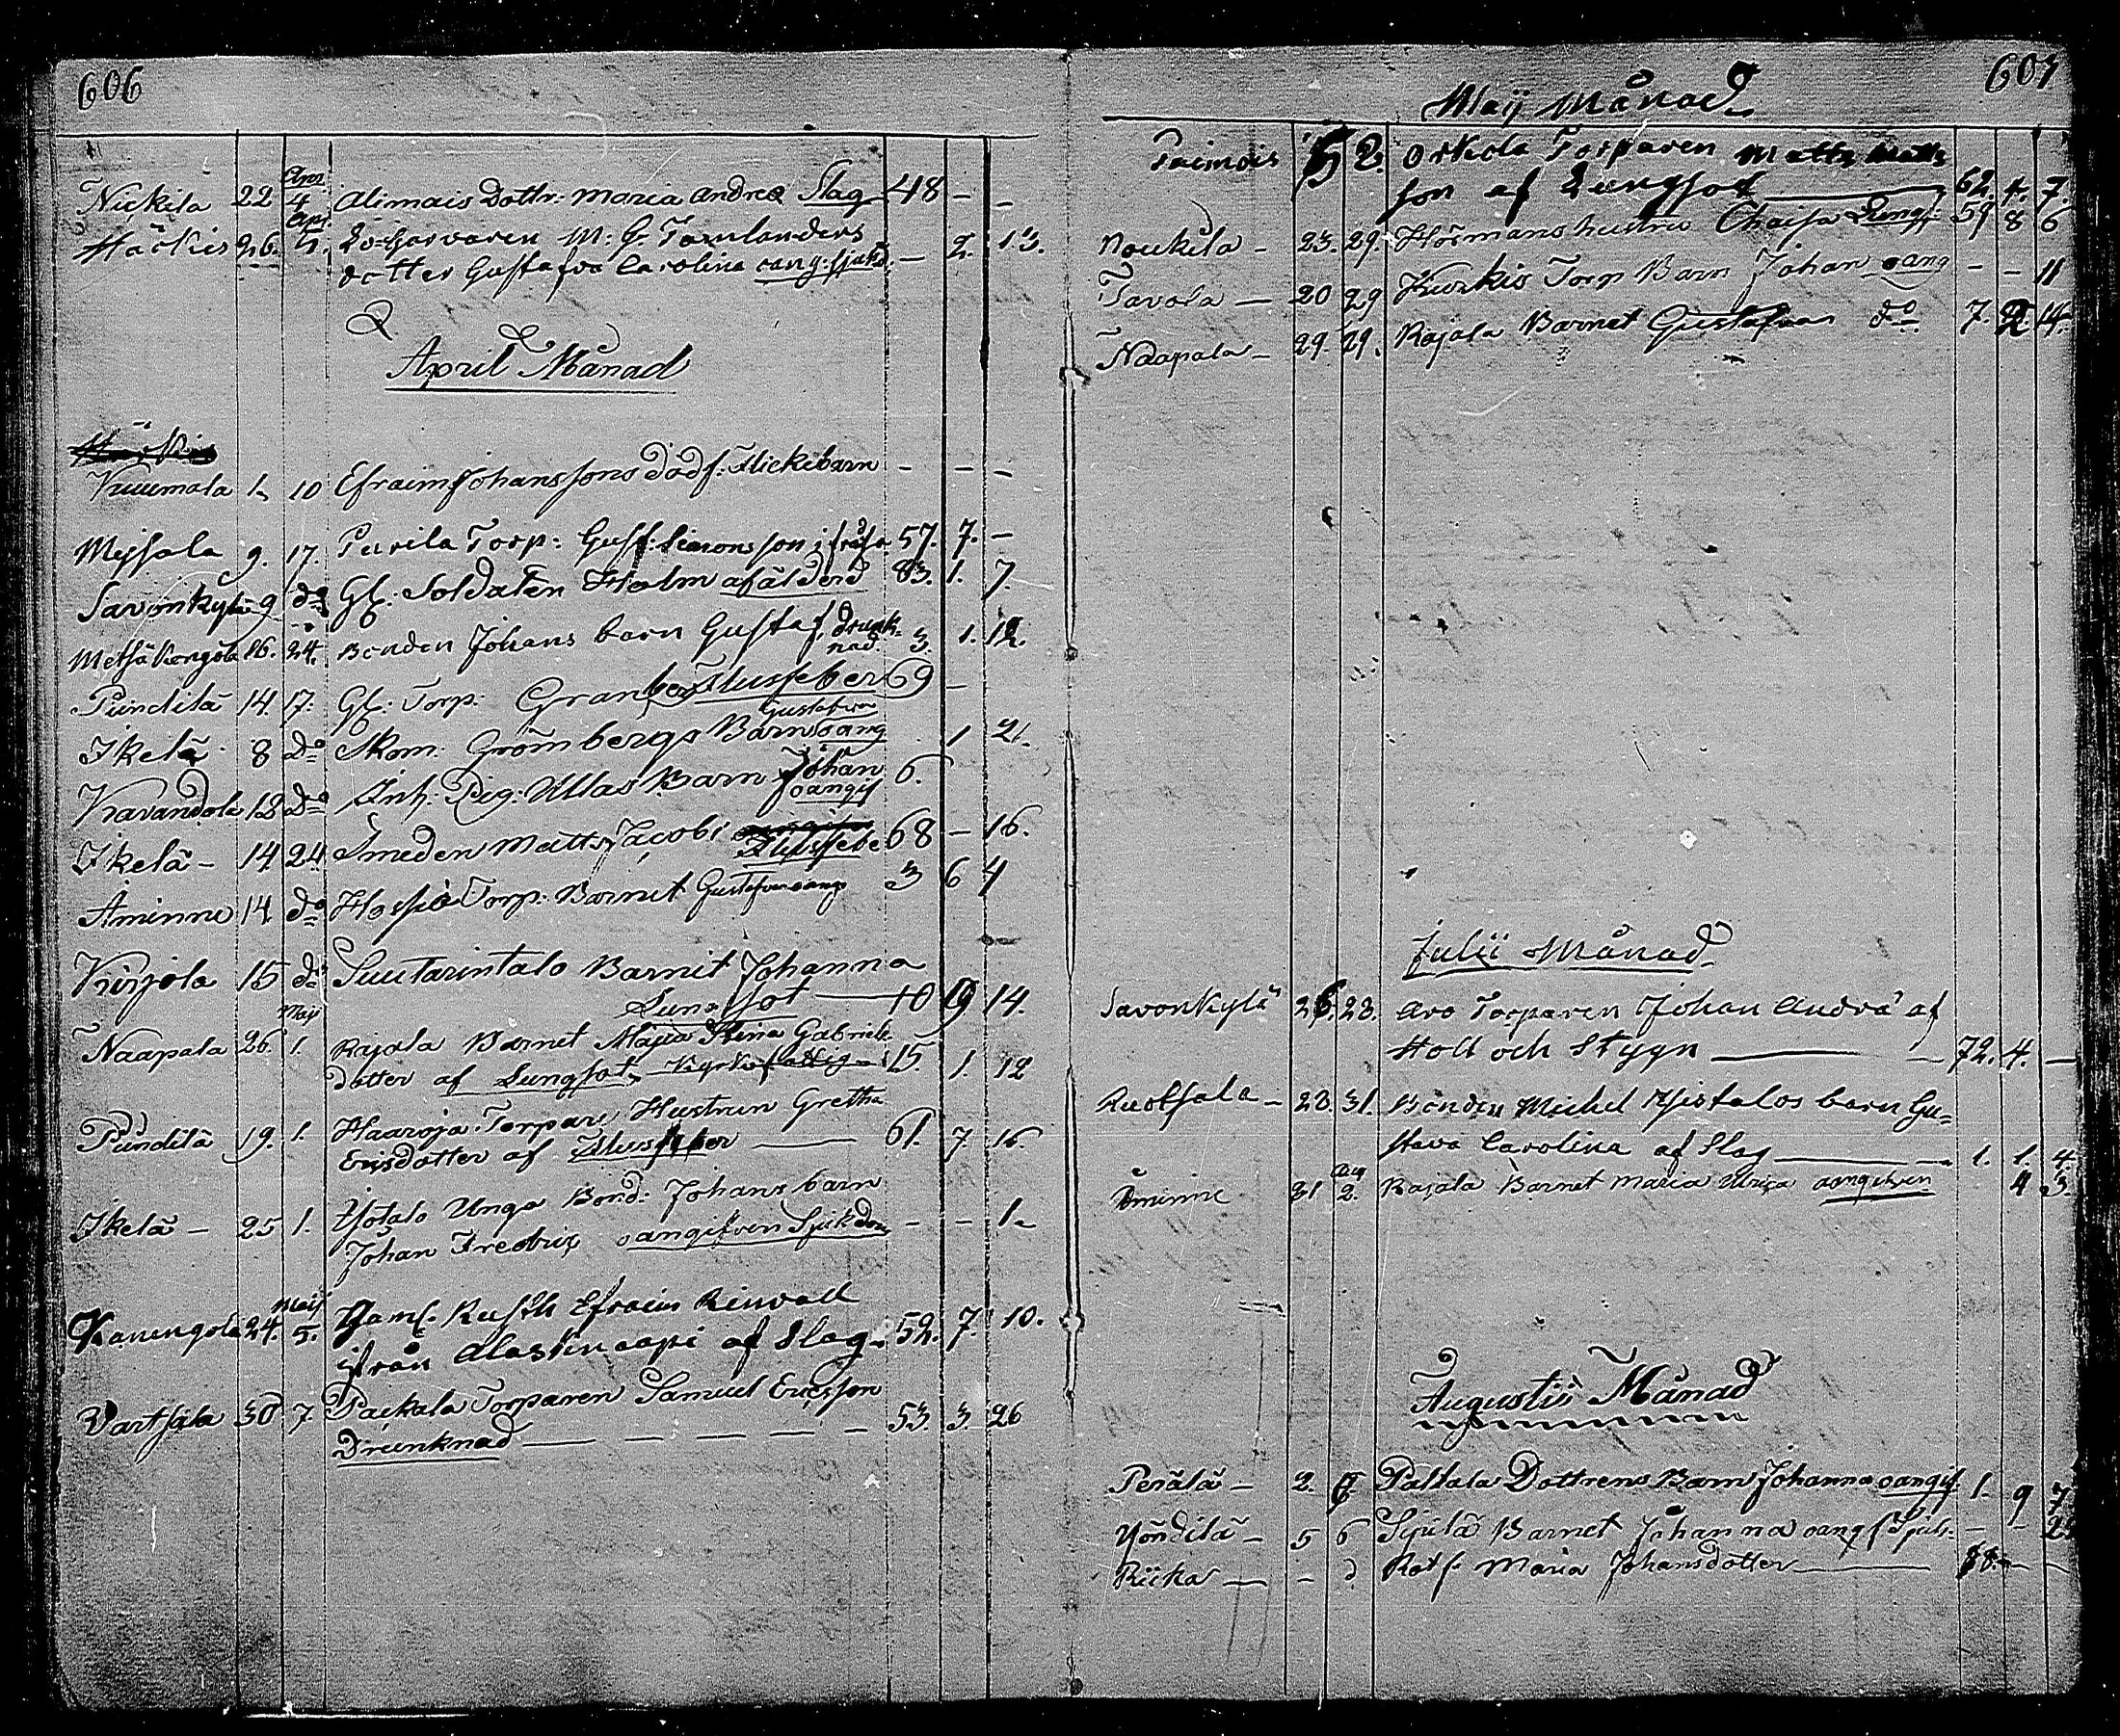 606
Apr.
Nickila 22 4 Alimais Dottr: Maria Andreæ Slag 48 - -
Apr.
Häckis 26. 5. M: G: Tamlanders
dotter Gustafva Carolina oang. sjukd. - 2. 13.
April Månad
Vuumala 1. 10 Efraim Johanssons dödf: Flickebarn - - -
Meysala 9. 17. Purila Torp: Gust: Simonsson 57. 7. -
Savonkylä 9 do Gl: Soldaten Holm af ålderd 83. 1. 7.
Metsä Kongola 16. 24. Bonden Johans barn Gustaf, drunk-
nad. 3. 1. 12.
Pundila 14. 17. Gl: Torp: Granberg Flussfeber 69 -
Gustafva
Ikelä 8 do Skom: Grömbergs Barn oang 1 21.
Kavandola 12 do Inh. Pig: Ullas Barn Johan 6.
oangif
Ikelä - 14 24 Smeden Matts Jacobi 68 - 16.
Flussfebe
Åminne 14 do Torp: Barnet Gustafva oang 3 6 4
Kirjola 15 do Suutarintalo Barnet Johanna
Lungsot 10 9 14.
Maji
Naapala 26. 1. Rajala Barnet Maja Stina Gabriels
dotter af Lungsot 15. 1. 12
Pundilä 19. 1. Haaroja Torpare Hustrun Gretha
Ericsdotter af Flussfeber 61. 7 16
Ikelä - 25 1. Yjötalo Unga Bond: Johans barn
Johan Fredric oangifven Sjukdom - - 1.
Maij
Kanengola 24. 5. Gaml. Rusth Efraim Renvall
ifrån Alaskinoopi af Slag 52. 7. 10.
Vartsala 30 7. Packala Torparen Samuel Ericsson
Drunknad 53. 3. 26
607
Maij Månad
Paimois 5 2. Orkola Torparen Matts Matts
son af Lungsot 62. 4. 7.
Noukila - 23. 29. Hörmans hustru Chaisa Lungs: 59 8 6
Tavola - 20 29 Kurkis Torp Barn Johan oang - - 11
Naapala - 29. 29. Rajala Barnet Gustafva do 7. 2 14.
Julii Månad
Savonkylä 26. 28. Aro Torparen Johan Andrä af
Holl och Stygn 72. 4. -
Ruotsala - 28. 31. Bonden Michel Yjistalos barn Gu-
stava Carolina af Slag 1. 1. 4.
Aug
Åminne 31 2. Rajala Barnet Maria Ulrica oangifven 4 3.
Augustii Månad
Perälä - 2. 6 Paltala Dottrens Barn Johanna oangif. 1. 9 7
Yöndilä - 5 6 Sjulä Barnet Johanna oangf Sjuk. - -
Riika - - d. Rotf. Maria Johansdotter 88. - -